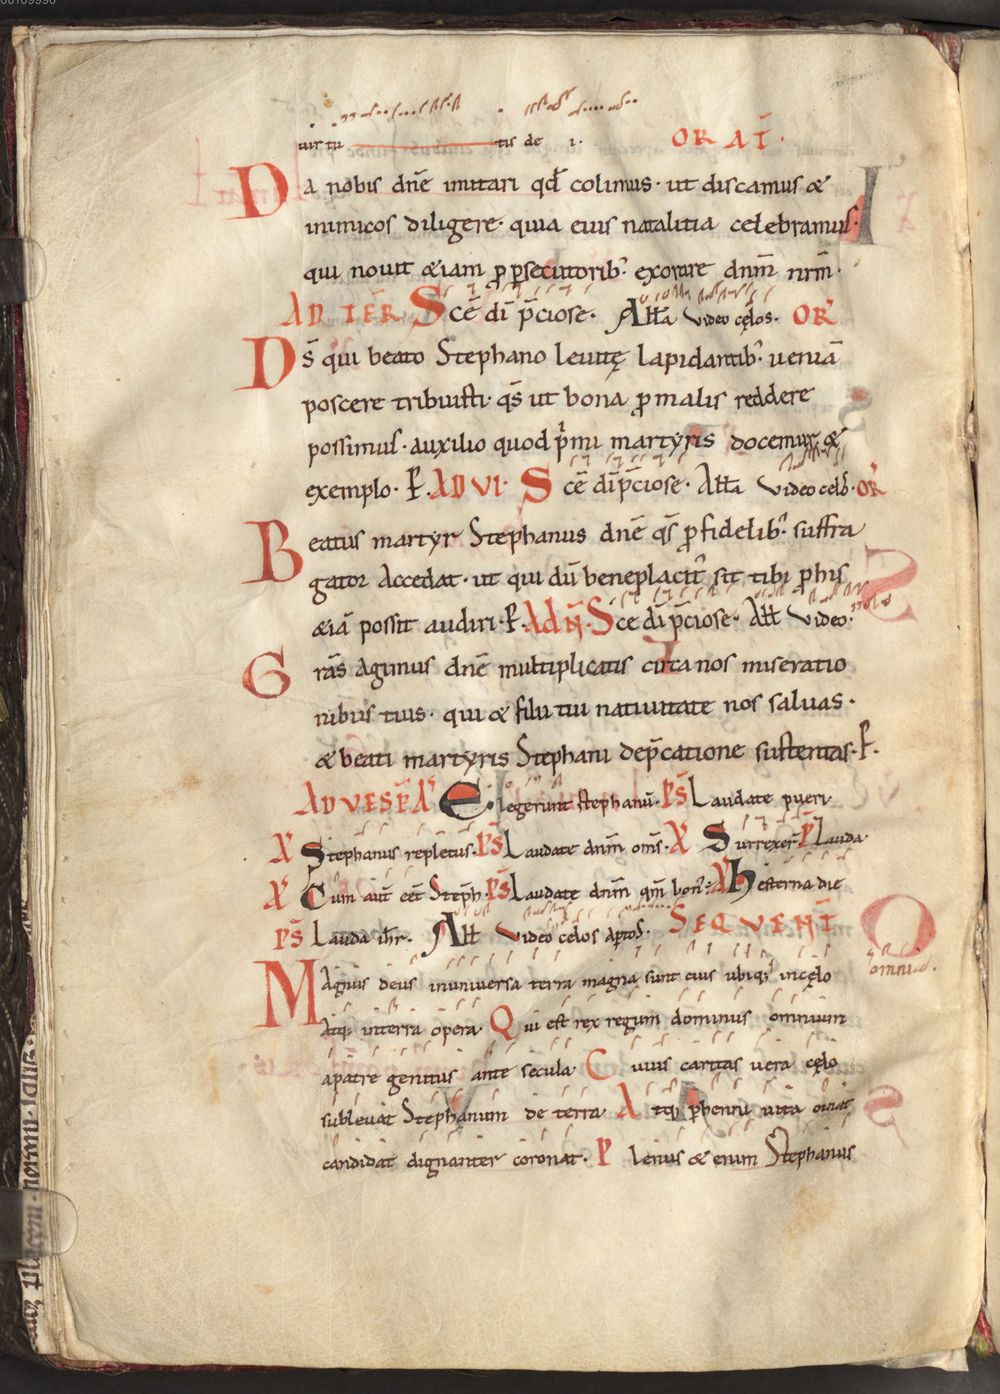 uir tu tis de i. ORAT̄.
Da nobis dn̄e imitari qđ colimus. ut discamus &
inimicos diligere. quia eius natalitia celebramus.
qui nouit &iam ꝓ ꝑsecutorib;. exorare dnm̄ nrm̄.
AD TER̄ Scē dī p̄ciose. All̄a Video cęlos. OR
Ds̄ qui beato Stephano leuitę lapidantib;. ueniā
poscere tribuisti. qs̄ ut bona ꝓ malis reddere
possimus. auxilio quod p̄mi martyris docemur &
exemplo. P. AD VI. Scē dī p̄ciose. All̄a Video celo. OR
Beatus martyr Stephanus dn̄e qs̄ ꝓ fidelib;. suffra
gator Accedat. ut qui dū beneplacit' sit tibi ꝓ his
&iā possit audiri. P. Ad N̄. Scē dī p̄ciose. Alł Video.
Grās Agimus dn̄e multiplicatis circa nos miseratio
nibus tuis. qui & filii tui natiuitate nos saluas.
& beati martyris Stephani dep̄catione sustentas. P.
AD VESP̄. A Elegerunt stephanū. PS̄ Laudate pueri
A Stephanus repletus. PS̄ Laudate dnm̄ oms̄. A Surrexer̄ P̄ Lauda.
A Cum aut̄ eēt Steph. PS̄ Laudate dnm̄ qm̄ bon'. A Hesterna die
PS̄ Lauda ihr̄. Alł Video cęlos aptos. SEQVENT̄
Magnus deus inuniuersa terra magna sunt eius ubiq; incęlo omniū.
Atq; interra opera. Qui est rex regum dominus omnium
apatre genitus ante secula. Cuius caritas uera cęlo
subleuat Stephanum de terra Atq; ꝑhenni uita ornat
candidat dignanter coronat. Plenus & enim Stephanus